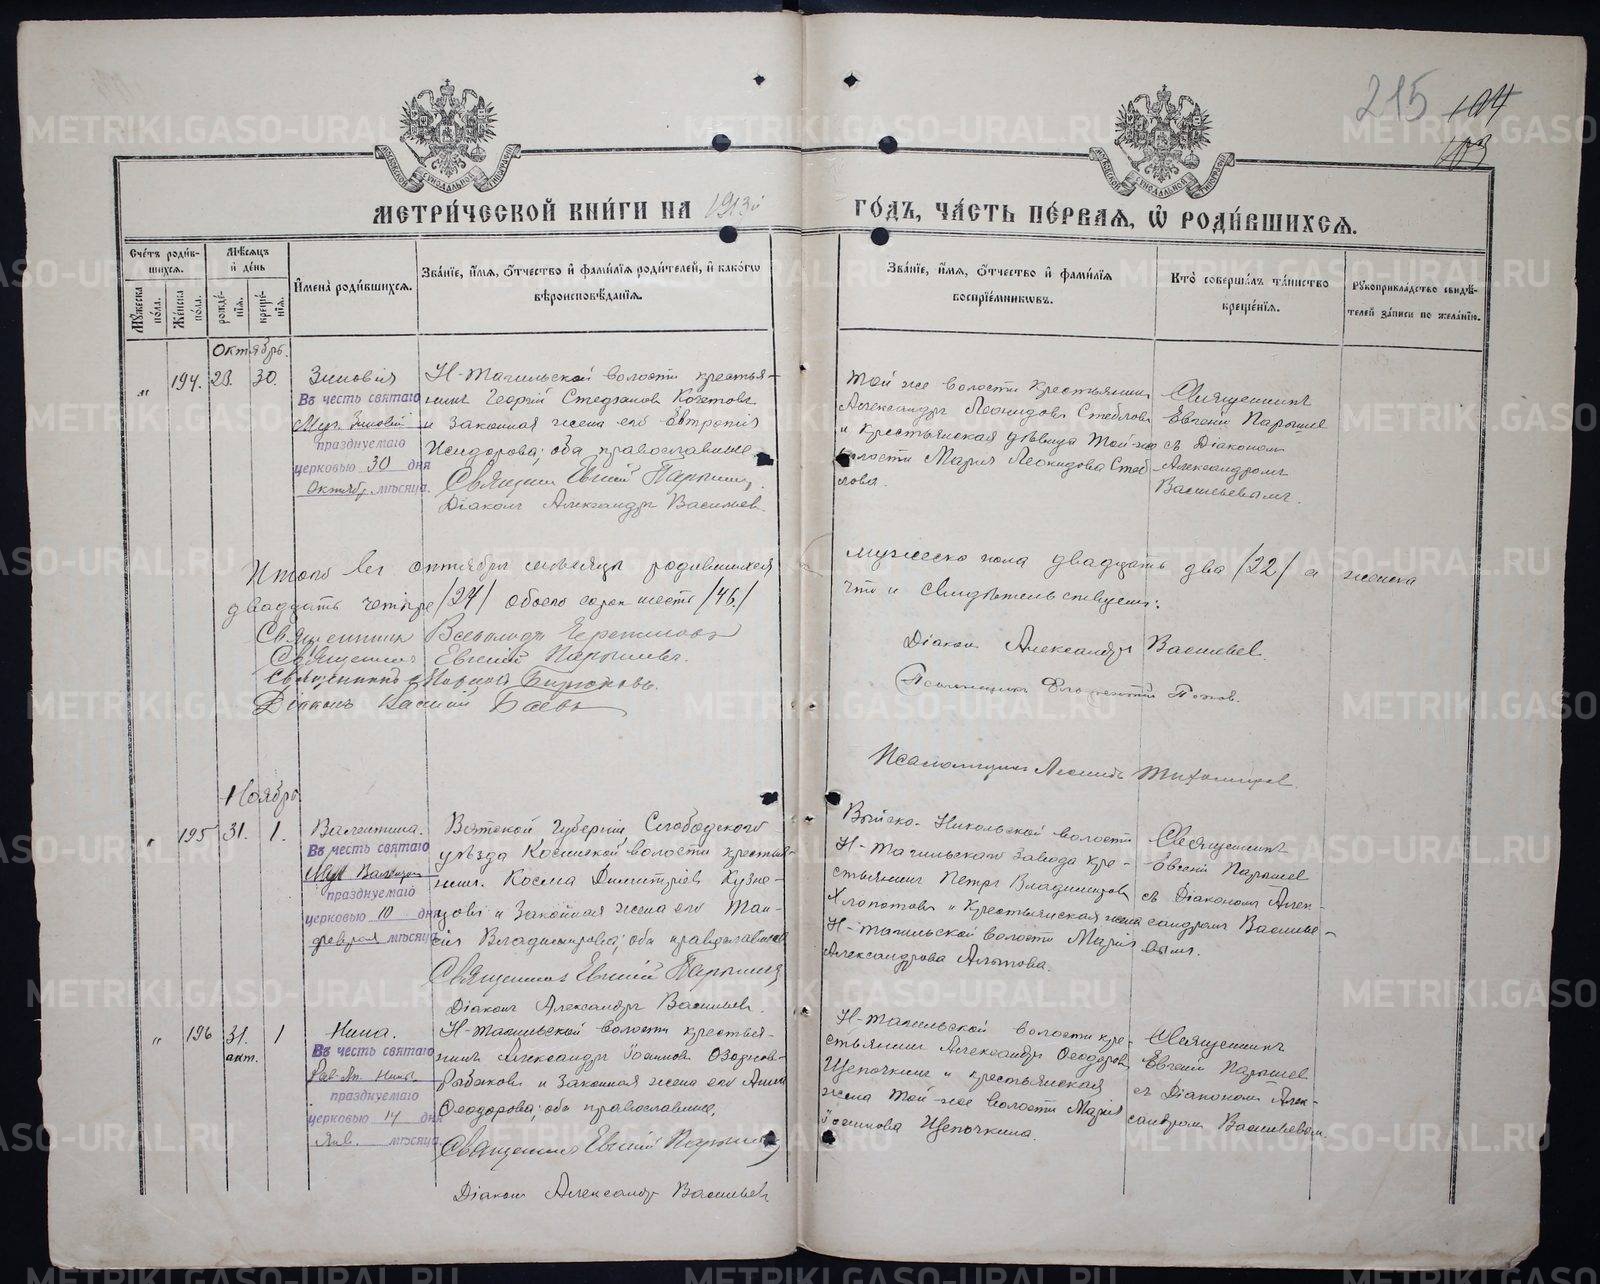 215
104
103
МЕТРИ́ЧЕСКОЙ КНИ́ГИ НА 1913й ГО́ДЪ, ЧА́СТЬ ПЕ́РВАЯ, Ѡ РОДИ́ВШИХСЯ.
Сче́тъ роди́вшихся.
Мѣ́сяцъ и҆ де́нь
И҆мена̀ роди́вшихся.
Зва́нїе, и҆́мя, ѻ҆́тчество и҆ фами́лїя роди́телей, и҆ како́гѡ вѣроисповѣ́данїя.
Зва́нїе, и҆́мя, ѻ҆́тчество и҆ фами́лїя воспрїе́мникѡвъ.
Кто̀ соверша́лъ та́инство креще́нїя.
Рꙋкоприкла́дство свидѣ́телей за́писи по жела́нїю.
Мꙋ́жеска по́ла.
Же́нска по́ла.
рожде́нїя.
креще́нїя.
Октябрь.
" 194. 28. 30.
Зиновія
Въ честь святаго
Муч. Зиновіи
празднуемаго
церковью 30 дня
Октябр. мѣсяца.
Н-Тагильской волости крестья-
нинъ Георгій Стефановъ Кочетовъ
и законная жена его Евтропія
Исидорова; оба православные
Священникъ Евгеній Парышевъ
Діаконъ Александръ Васильев.
Той же волости крестьянинъ
Александръ Леонидовъ Стебловъ
и крестьянская дѣвица той-же
волости Марія Леонидова Стеб-
лова.
Священникъ
Евгеній Парышев
съ Діакономъ
Александромъ
Васильевымъ.
Итого въ октябрѣ мѣсяцѣ родившихся мужеска пола двадцать два /22/ а женска
двадцать четыре /24/ обоего сорок шесть /46./ что и свидѣтельствуемъ:
Священникъ Всеволодъ
Священникъ Евгеній Парышевъ.
Священникъ Бирюковъ.
Діаконъ Василій Баевъ
Діаконъ Александръ Васильев.
Псаломщикъ Попов.
Псаломщикъ Леонидъ Тихомиров.
Ноябрь
" 195 31. 1.
Валентина.
Въ честь святаго
Муч. Валентин
празднуемаго
церковью 10 дня
февраля мѣсяца
Вятской Губерніи, Слободского
уѣзда Косинской волости крестья-
нинъ Косма Димитріев Кузне-
цовъ и законная жена его Таи-
сія Владимирова; оба православные
Священникъ Евгеній Парышев
Діаконъ Александръ Васильев.
Николькой волости
Н-Тагильскаго завода кре-
стьянинъ Петръ Владимировъ
Хлопотовъ и крестьянская жена
Н-Тагильской волости Марія
Александрова
Священникъ
Евгеній Парышев
съ Діакономъ Алек-
сандромъ Василье-
вымъ.
" 196 31. окт. 1
Нина.
Въ честь святаго
Рав-Ап. Нины
празднуемаго
церковью 14 дня
Янв. мѣсяца
Н-Тагильской волости крестья-
нинъ Александръ Іоакимов
Рыбаковъ и законная жена его Анна
Ѳеодорова; оба православные,
Священникъ Евгеній Парышев
Діаконъ Александръ Васильевъ
Н-Тагильской волости кре-
стьянинъ Александръ Ѳеодоровъ
Щепочкинъ и крестьянская
жена той-же волости Марія
Іоакимова Щепочкина.
Священникъ
Евгеній Парышев
съ Діакономъ Алек-
сандромъ Васильевым.
METRIKI.GASO-URAL.RU